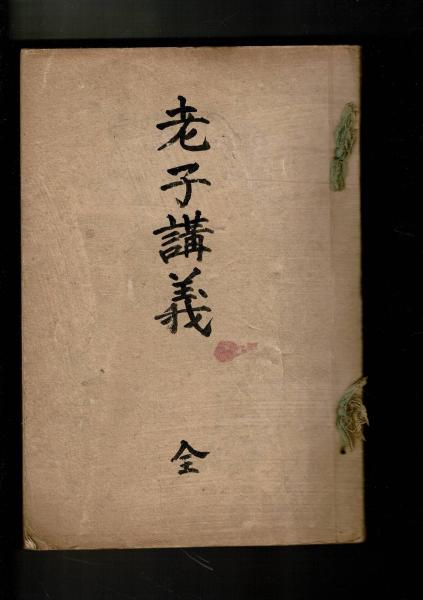 老子講義
全